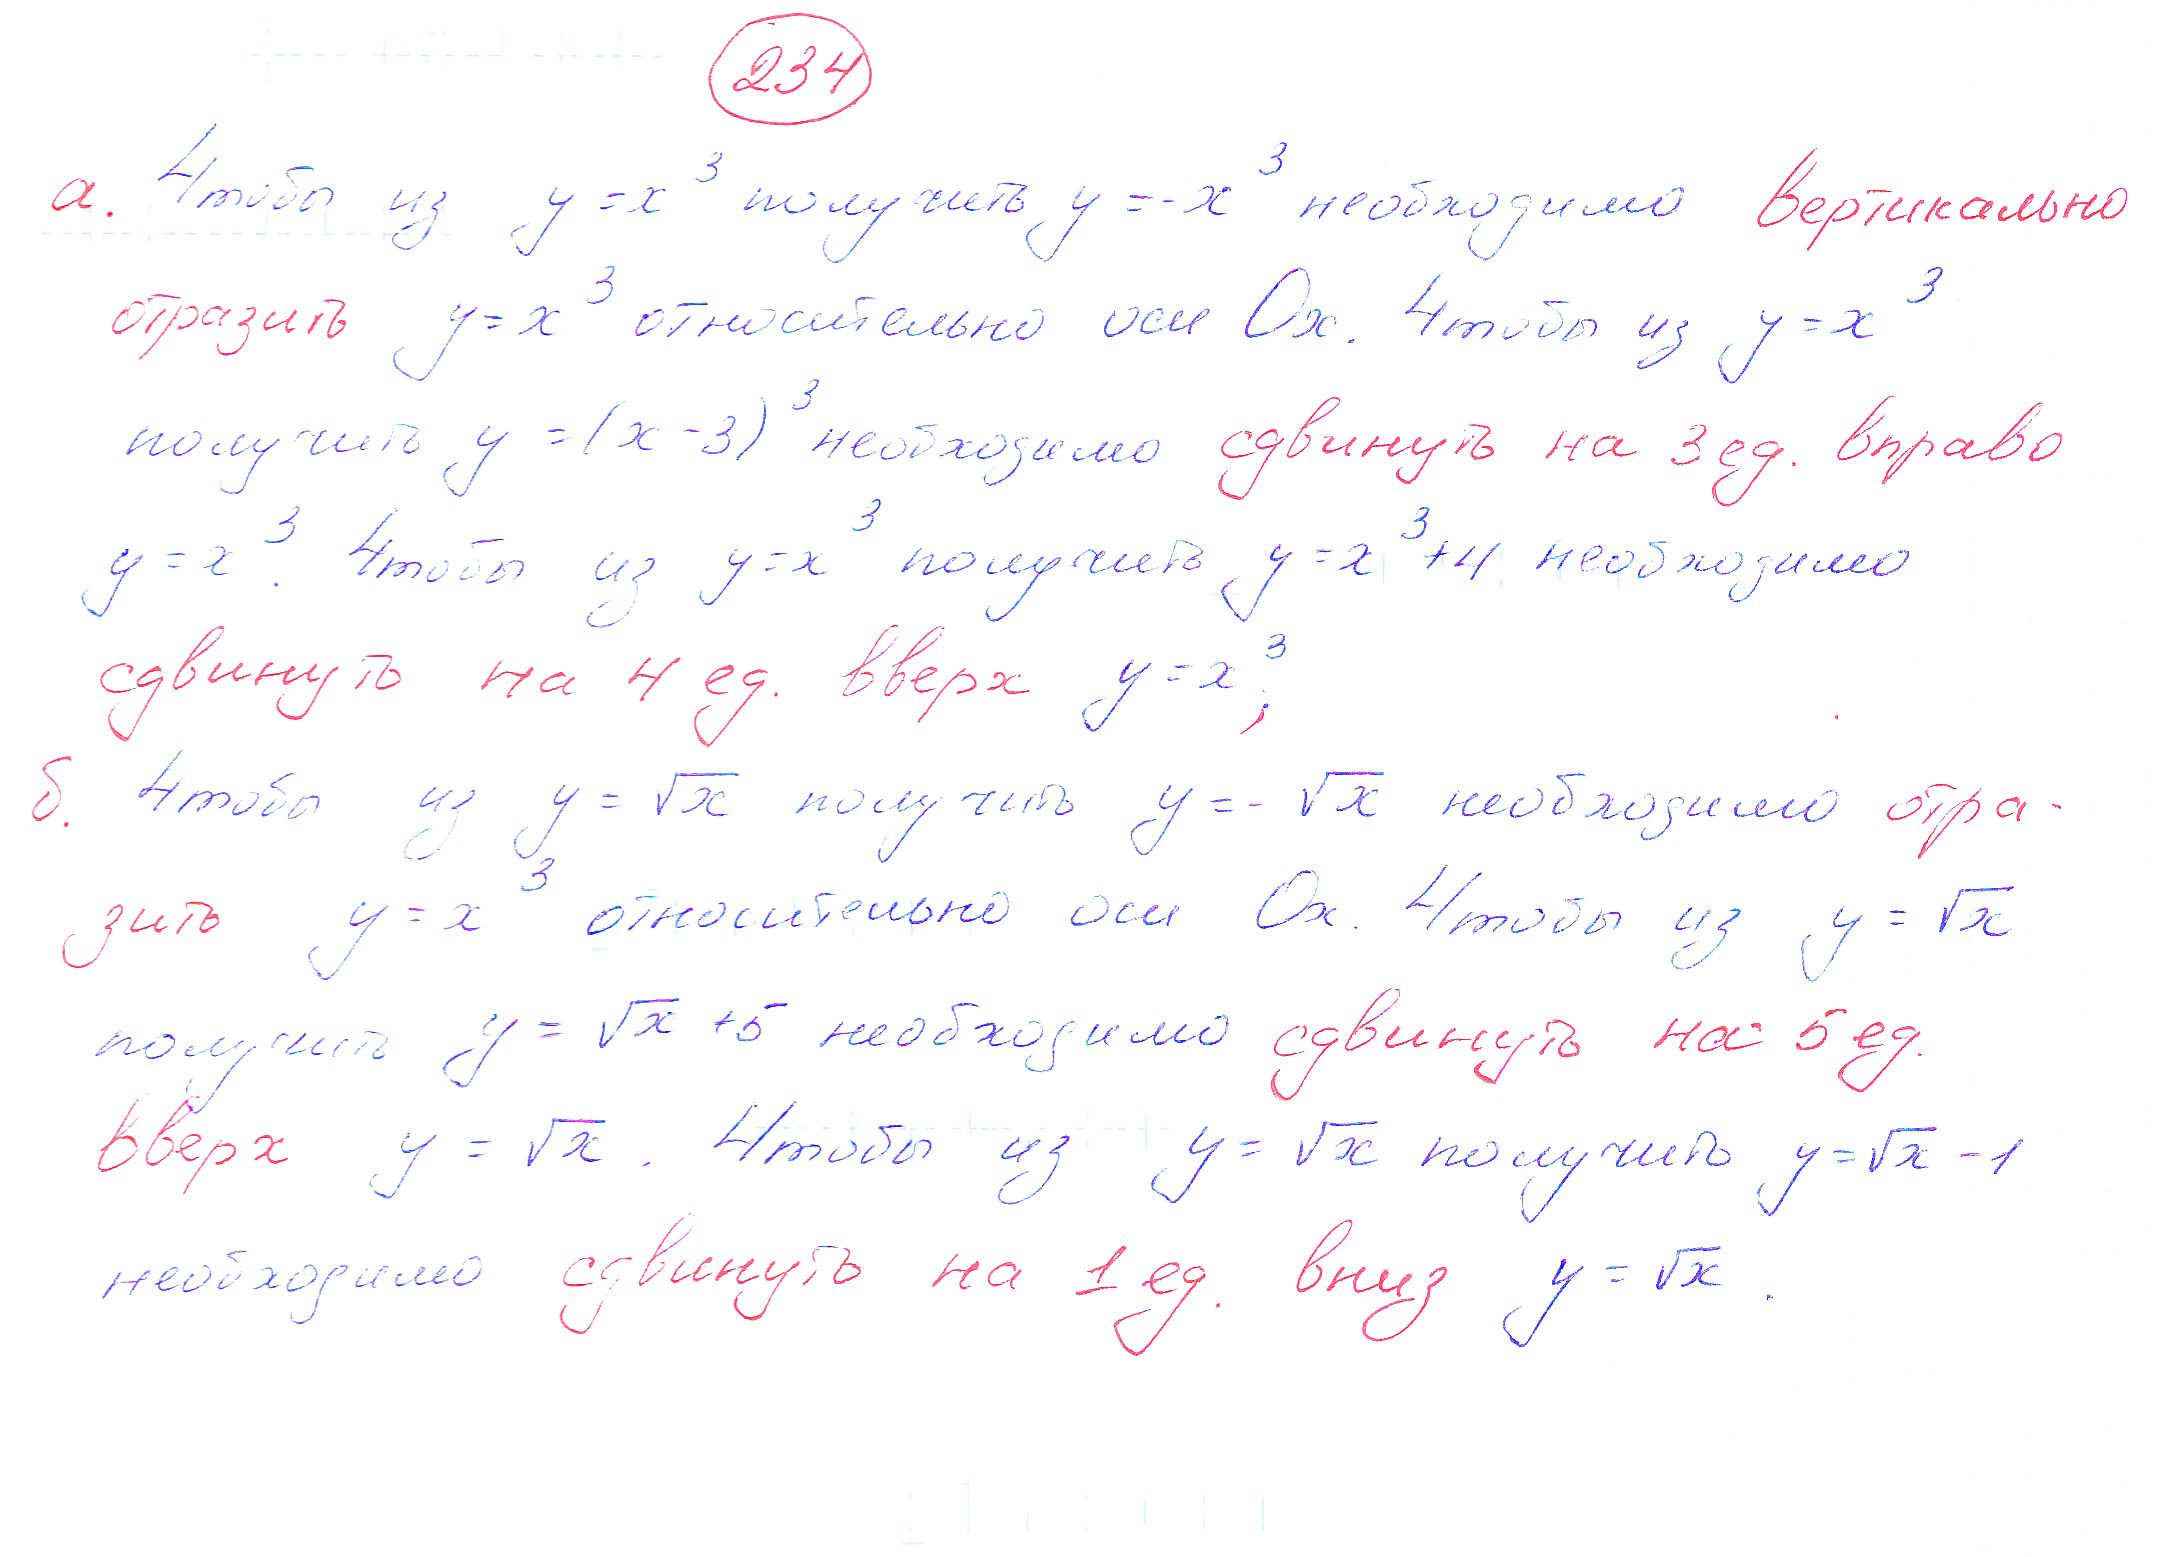 234
а. Чтобы из y = x³ получить y = -x³ необходимо вертикально
отразить y = x³ относительно оси Ox. Чтобы из y = x³
получить y = (x - 3)³ необходимо сдвинуть на 3 ед. вправо
y = x³. Чтобы из y = x³ получить y = x³ + 4 необходимо
сдвинуть на 4 ед. вверх y = x³;
б. Чтобы из y = √x получить y = - √x необходимо отра-
зить y = x³ относительно оси Ox. Чтобы из y = √x
получить y = √x + 5 необходимо сдвинуть на 5 ед.
вверх y = √x. Чтобы из y = √x получить y = √x - 1
необходимо сдвинуть на 1 ед. вниз y = √x.